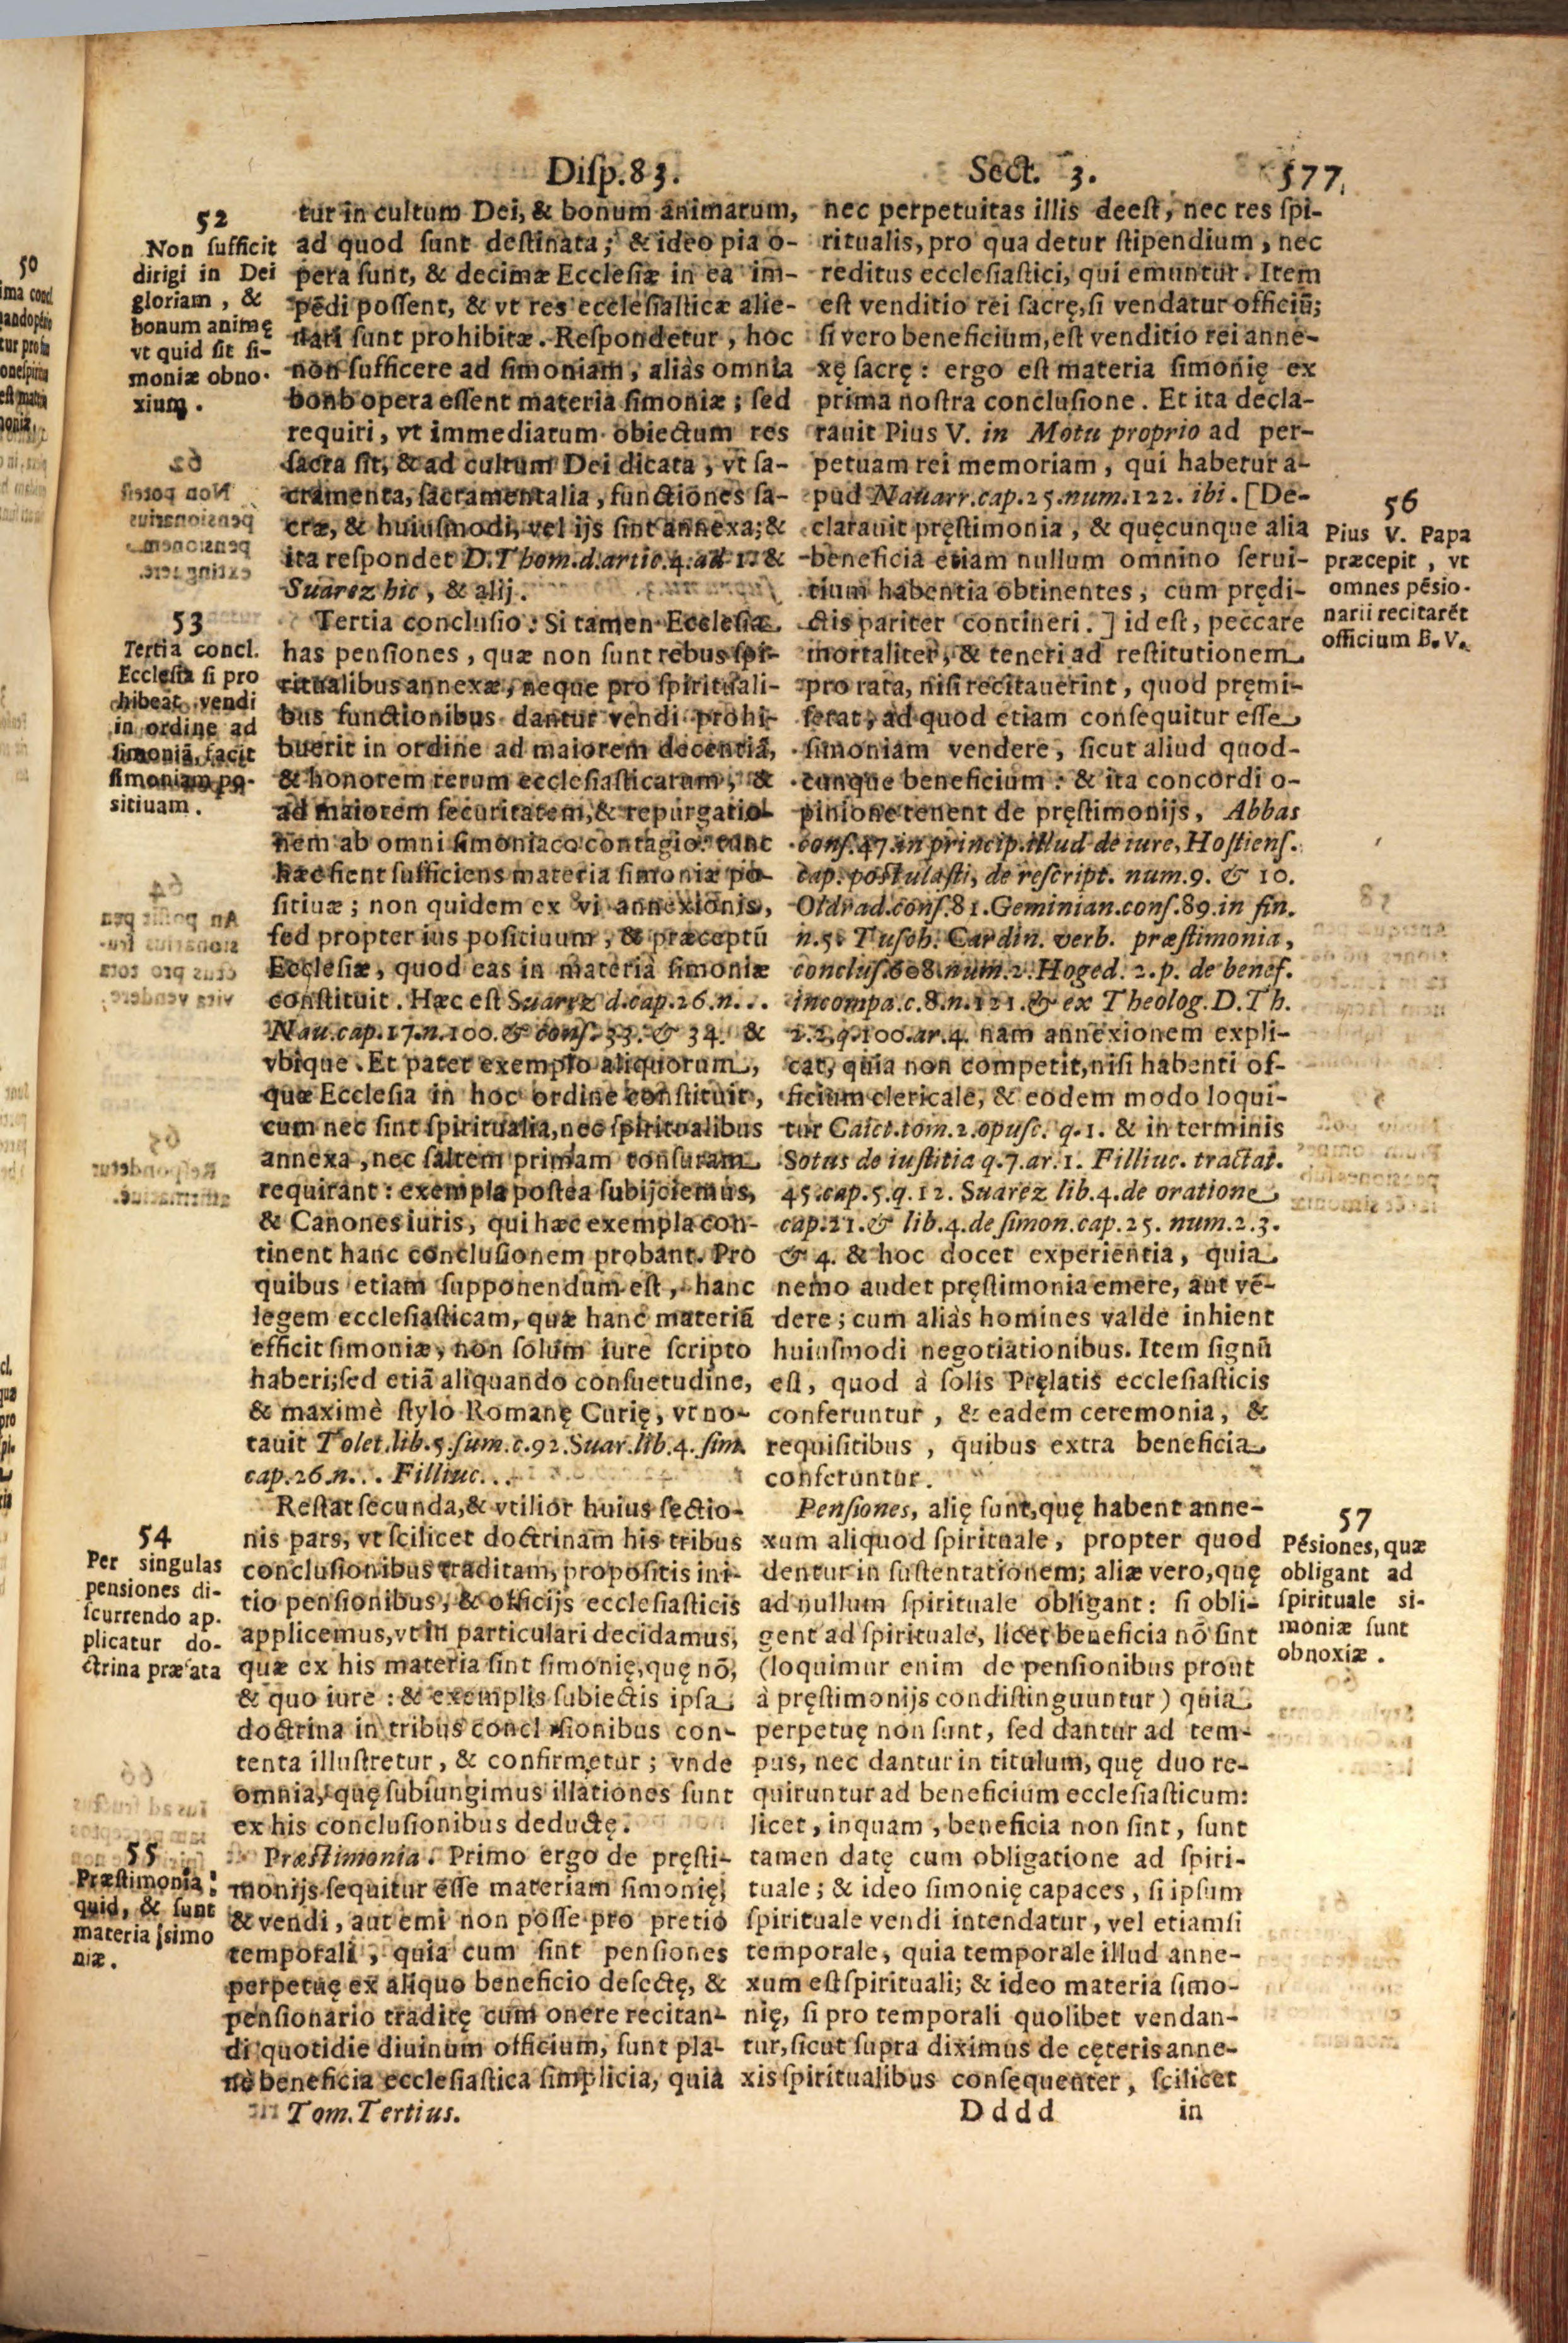 Disp.83. Sect. 3. 577
52
Non sufficit
dirigi in Dei
gloriam, &
bonum animę
vt quid sit si-
moniæ obno-
xium.
tur in cultum Dei, & bonum animarum,
ad quod sunt destinata; & ideo pia o-
pera sunt, & decimæ Ecclesiæ in ea im-
pēdi possent, & vt res ecclesiasticæ alie-
nari sunt prohibitæ. Respondetur, hoc
non sufficere ad simoniam, aliàs omnia
bonb opera essent materia simoniæ; sed
requiri, vt immediatum obiectum res
sacra sit, & ad cultum Dei dicata, vt sa-
cramenta, sacramentalia, functiones sa-
cræ, & huiusmodi, vel ijs sint annexa; &
ita respondet D.Thom.d.artic.4.ad 1. &
Suarez hic, & alij.
53
Tertia concl.
Ecclesia si pro
hibeat vendi
in ordine ad
simoniā, facit
simoniam po-
sitiuam.
Tertia conclusio: Si tamen Ecclesia
has pensiones, quæ non sunt rebus spi-
ritualibus annexæ, neque pro spirituali-
bus functionibus dantur vendi prohi-
buerit in ordine ad maiorem decentiā,
& honorem rerum ecclesiasticarum, &
ad maiorem securitatem, & repurgatio-
nem ab omni simoniaco contagio: tunc
hæc fient sufficiens materia simoniæ po-
sitiuæ; non quidem ex vi annexionis,
sed propter ius positiuum, & præceptū
Ecclesiæ, quod eas in materia simoniæ
constituit. Hæc est Suarez d.cap.26.n...
Nau.cap.17.n.100.& cons.33.& 34. &
vbique. Et patet exemplo aliquorum,
quæ Ecclesia in hoc ordine constituit,
cum nec sint spiritualia, nec spiritualibus
annexa, nec saltem primam tonsuram
requirant: exempla postea subijciemus,
& Canones iuris, qui hæc exempla con-
tinent hanc conclusionem probant. Pro
quibus etiam supponendum est, hanc
legem ecclesiasticam, quæ hanc materiā
efficit simoniæ, non solum iure scripto
haberi; sed etiā aliquando consuetudine,
& maximè stylo Romanę Curię, vt no-
tauit Tolet.lib.5.sum.c.92.Suar.lib.4.sim.
cap.26.n... Filliuc...
54
Per singulas
pensiones di-
scurrendo ap.
plicatur do-
ctrina præata
Restat secunda, & vtilior huius sectio-
nis pars, vt scilicet doctrinam his tribus
conclusionibus traditam, propositis ini-
tio pensionibus, & officijs ecclesiasticis
applicemus, vt in particulari decidamus,
quæ ex his materia sint simonię, quę nō,
& quo iure: & exemplis subiectis ipsa
doctrina in tribus conclusionibus con-
tenta illustretur, & confirmetur; vnde
omnia, quę subiungimus illationes sunt
ex his conclusionibus deductę.
55
Præstimonia
quid, & sunt
materia simo
niæ.
Præstimonia. Primo ergo de pręsti-
monijs sequitur esse materiam simonię,
& vendi, aut emi non posse pro pretio
temporali, quia cum sint pensiones
perpetuę ex aliquo beneficio desectę, &
pensionario traditę cum onere recitan-
di quotidie diuinum officium, sunt pla-
nè beneficia ecclesiastica simplicia, quia
Tom.Tertius.
nec perpetuitas illis deest, nec res spi-
ritualis, pro qua detur stipendium, nec
reditus ecclesiastici, qui emuntur. Item
est venditio rei sacrę, si vendatur officiū;
si vero beneficium, est venditio rei anne-
xę sacrę: ergo est materia simonię ex
prima nostra conclusione. Et ita decla-
rauit Pius V. in Motu proprio ad per-
petuam rei memoriam, qui habetur a-
pud Nauarr.cap.25.num.122. ibi. [De-
clarauit pręstimonia, & quęcunque alia
beneficia etiam nullum omnino serui-
tium habentia obtinentes, cum prędi-
ctis pariter contineri.] id est, peccare
mortaliter, & teneri ad restitutionem
pro rata, nisi recitauerint, quod pręmi-
serat, ad quod etiam consequitur esse
simoniam vendere, sicut aliud quod-
cunque beneficium: & ita concordi o-
pinione tenent de pręstimonijs, Abbas
cons.47.in princip.illud de iure, Hostiens.
cap. postulasti, de rescript. num.9. & 10.
Oldrad.cons.81.Geminian.cons.89.in fin.
n.5. Tusch. Cardin. verb. præstimonia,
conclus.608.num.2.Hoged. 2.p. de benef.
incompa.c.8.n.121.& ex Theolog.D.Th.
2.2.q.100.ar.4. nam annexionem expli-
cat, quia non competit, nisi habenti of-
ficium clericale, & eodem modo loqui-
tur Caiet.tom.2.opusc. q.1. & in terminis
Sotus de iustitia q.7.ar.1. Filliuc. tractat.
45.cap.5.q.12. Suarez lib.4.de oratione
cap.21.& lib.4.de simon.cap.25. num.2.3.
& 4. & hoc docet experientia, quia
nemo audet pręstimonia emere, aut vē-
dere; cum aliàs homines valde inhient
huiusmodi negotiationibus. Item signū
est, quod à solis Pręlatis ecclesiasticis
conferuntur, & eadem ceremonia, &
requisitibus, quibus extra beneficia
conferuntur.
56
Pius V. Papa
præcepit, vt
omnes pēsio-
narii recitarēt
officium B.V.
Pensiones, alię sunt, quę habent anne-
xum aliquod spirituale, propter quod
dentur in sustentationem; aliæ vero, quę
ad nullum spirituale obligant: si obli-
gent ad spirituale, licet beneficia nō sint
(loquimur enim de pensionibus prout
à pręstimonijs condistinguuntur) quia
perpetuę non sunt, sed dantur ad tem-
pus, nec dantur in titulum, quę duo re-
quiruntur ad beneficium ecclesiasticum:
licet, inquam, beneficia non sint, sunt
tamen datę cum obligatione ad spiri-
tuale; & ideo simonię capaces, si ipsum
spirituale vendi intendatur, vel etiamsi
temporale, quia temporale illud anne-
xum est spirituali; & ideo materia simo-
nię, si pro temporali quolibet vendan-
tur, sicut supra diximus de cęteris anne-
xis spiritualibus consequenter, scilicet
57
Pēsiones, quæ
obligant ad
spirituale si-
moniæ sunt
obnoxiæ.
Dddd in